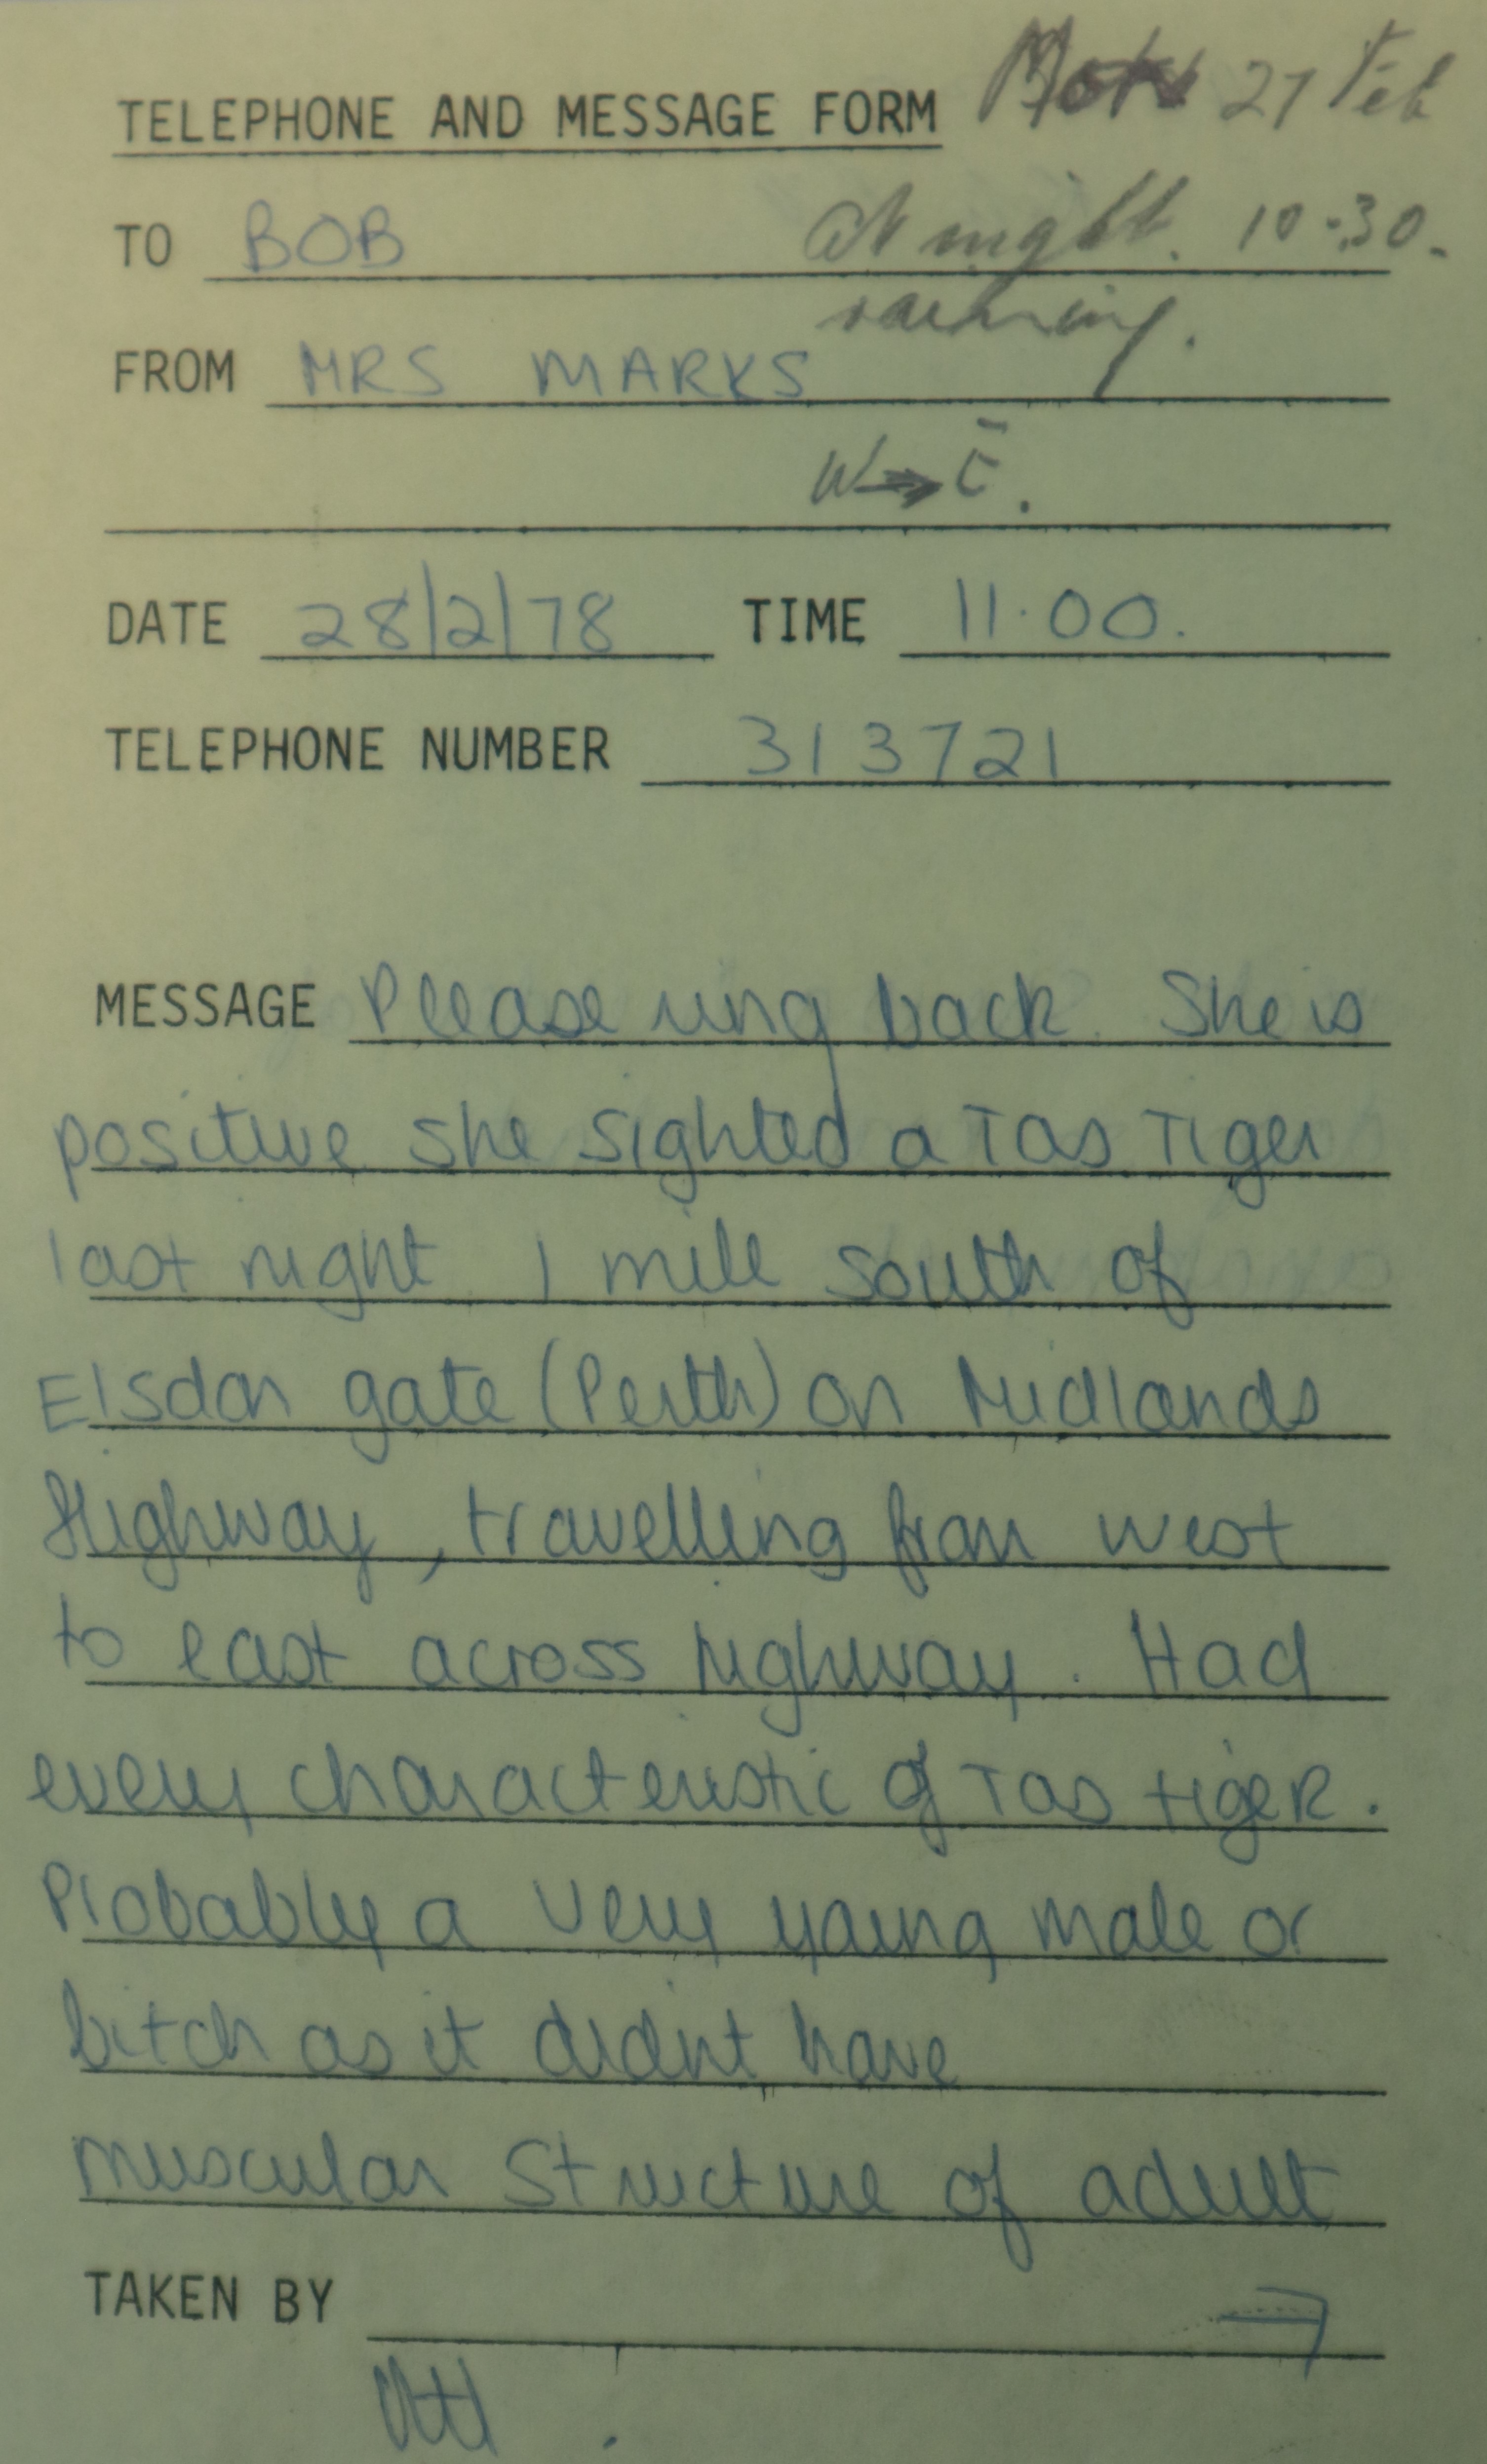 TELEPHONE AND MESSAGE FORM Mon 27 Feb
TO BOB At night. 10.30.
raining.
FROM MRS MARKS
W→E.
DATE 28/2/78 TIME 11.00.
TELEPHONE NUMBER 313721
MESSAGE Please ring back. She is
positive she sighted a Tas Tiger
last night 1 mile south of
Elsdon gate (Perth) on Midlands
Highway, travelling from west
to east across highway. Had
every characteristic of Tas tigeR.
Probably a very young male or
bitch as it didnt have
muscular structure of adult
TAKEN BY →